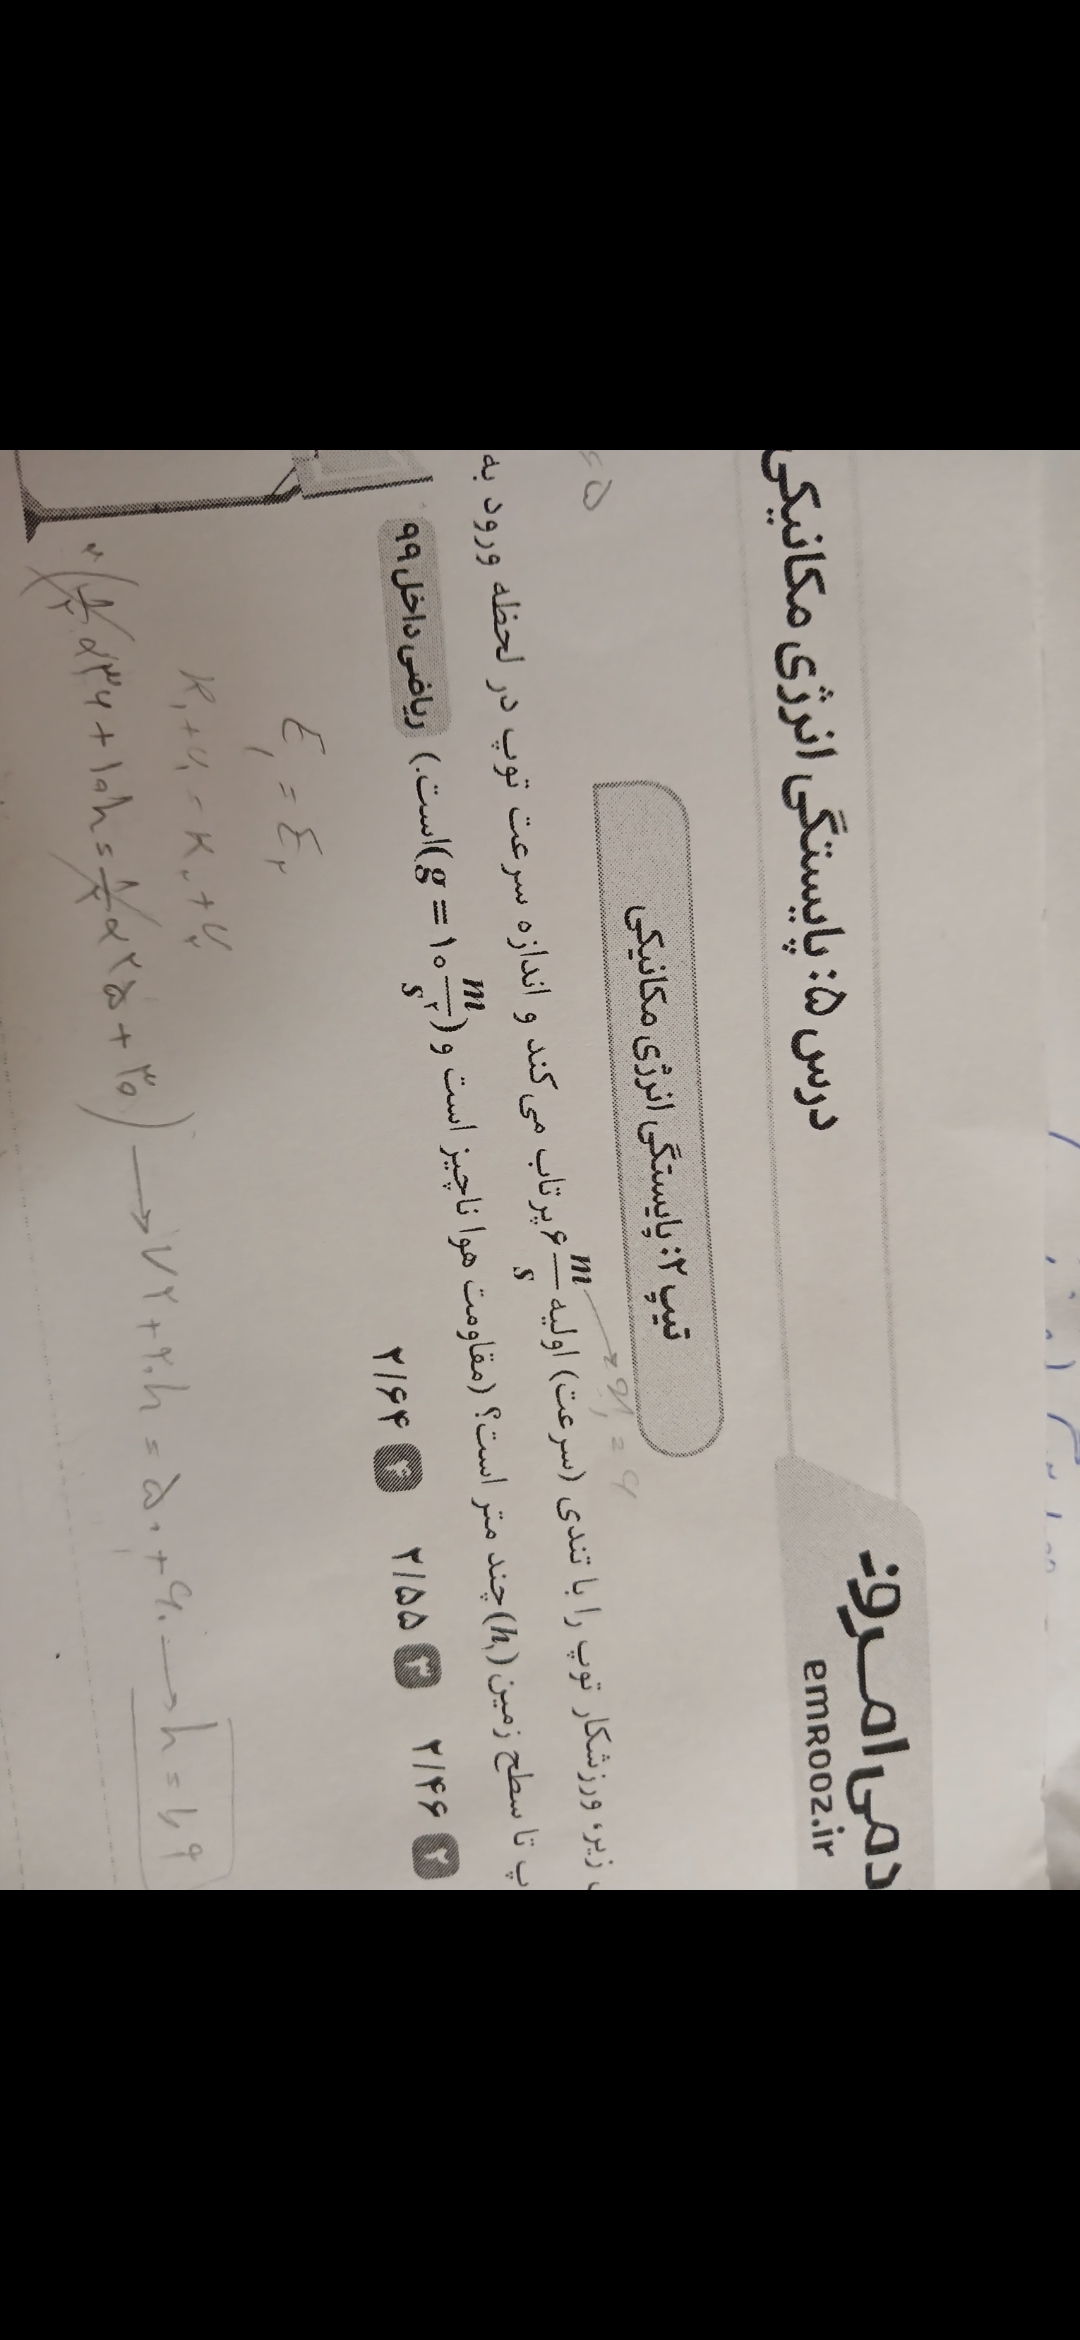 درس ۵: پایستگی انرژی مکانیکی
emrooz.ir
تیپ ۲: پایستگی انرژی مکانیکی
زیر، ورزشکار توپ را با تندی (سرعت) اولیه ۶ m/s پرتاب می‌کند و اندازه سرعت توپ در لحظه ورود به
تا سطح زمین (h₁) چند متر است؟ (مقاومت هوا ناچیز است و (g = ۱۰ m/s²) است.) ریاضی داخل ۹۹
۲ ۲/۴۶ ۳ ۲/۵۵ ۴ ۲/۶۴
= ۵
E₁ = E₂
K₁ + U₁ = K₂ + U₂
۲(½ × ۳۶ + ۱۰h = ½ × ۲۵ + ۳۰) → ۷۲ + ۲۰h = ۵۰ + ۶۰ → h = ۱,۹